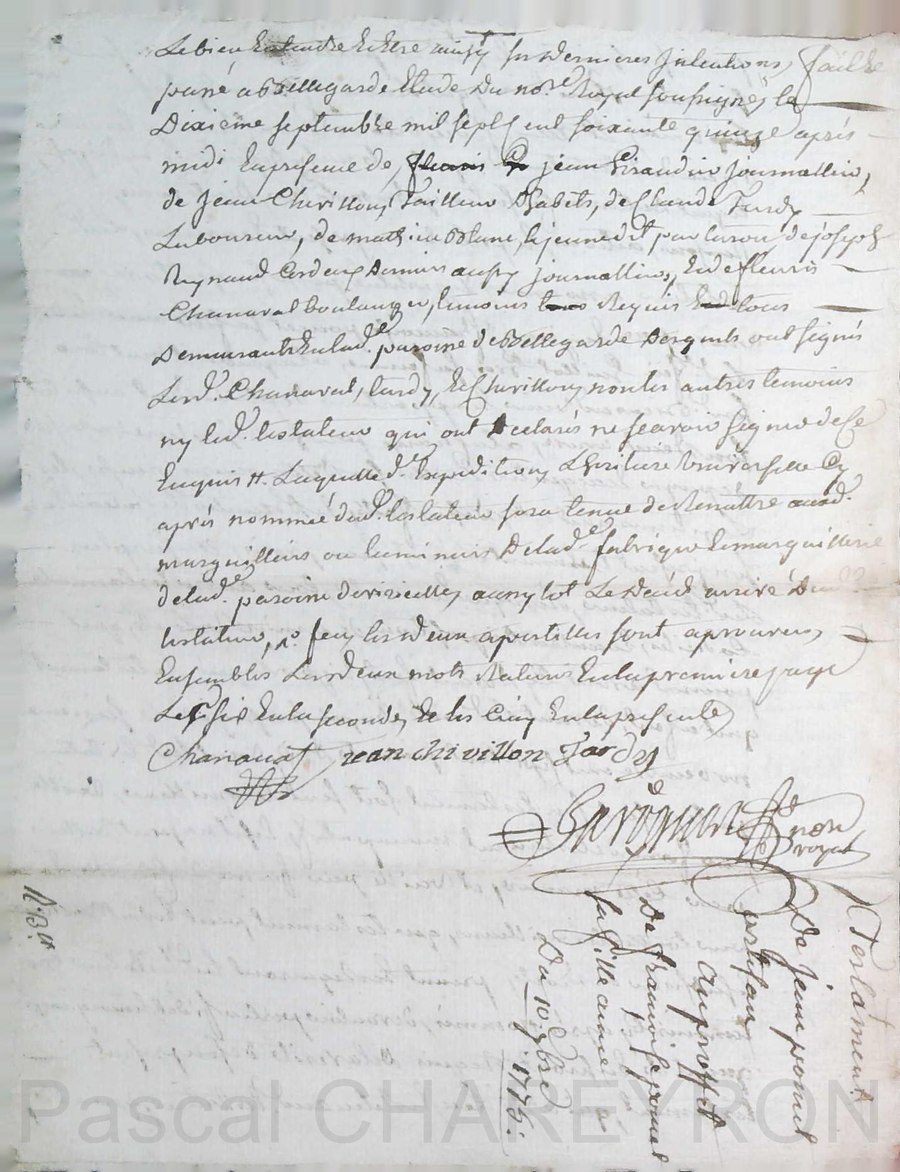 Le bien Entendre Et Etre ainsy ses Dernieres Intentions, fait Et
passé a Bellegarde Etude Du no.re Royal soussigné, le
Dixieme septembre mil sept Cent soixante quinze apres
midi En presence de, jean Giraudin journallier,
de jean Chivillon, Tailleur D'habits, de Claude Tardy
Laboureur, de mathieu Blanc, le jeune de
Reynaud journallier, Et de fleuris
Chanavat Boulanger, temoins Requis tous
Demeurants En lad.e paroisse de Bellegarde Desquels ont signés
Lesd. Chanavat, tardy, Et Chivillon, non les autres temoins
ny led. testateur qui ont Declarés ne scavoir signer de Ce
Enquis H. Laquelle d.e Expedition, L'heritiere Universelle Cy
après nommée dud. testateur sera tenue de Remettre auxd.
marguilliers ou luminiers De lad.e fabrique Et marguillerie
de lad.e paroisse aussy tot Le Décéd arrivé Du
testateur, les deux apostilles sont aprouvées,
Ensembles Les deux mots Raturés En la premiere page
Les six En la seconde, Et les Cinq En la presente
Chanavat jean chivillon Tardy
no.re
royal
N.o 13.
Testament
De jean ponel
artisan
au proffit
De françoise ponel
sa fille ainee
Du 10 7bre
1775.
Pascal CHAREYRON